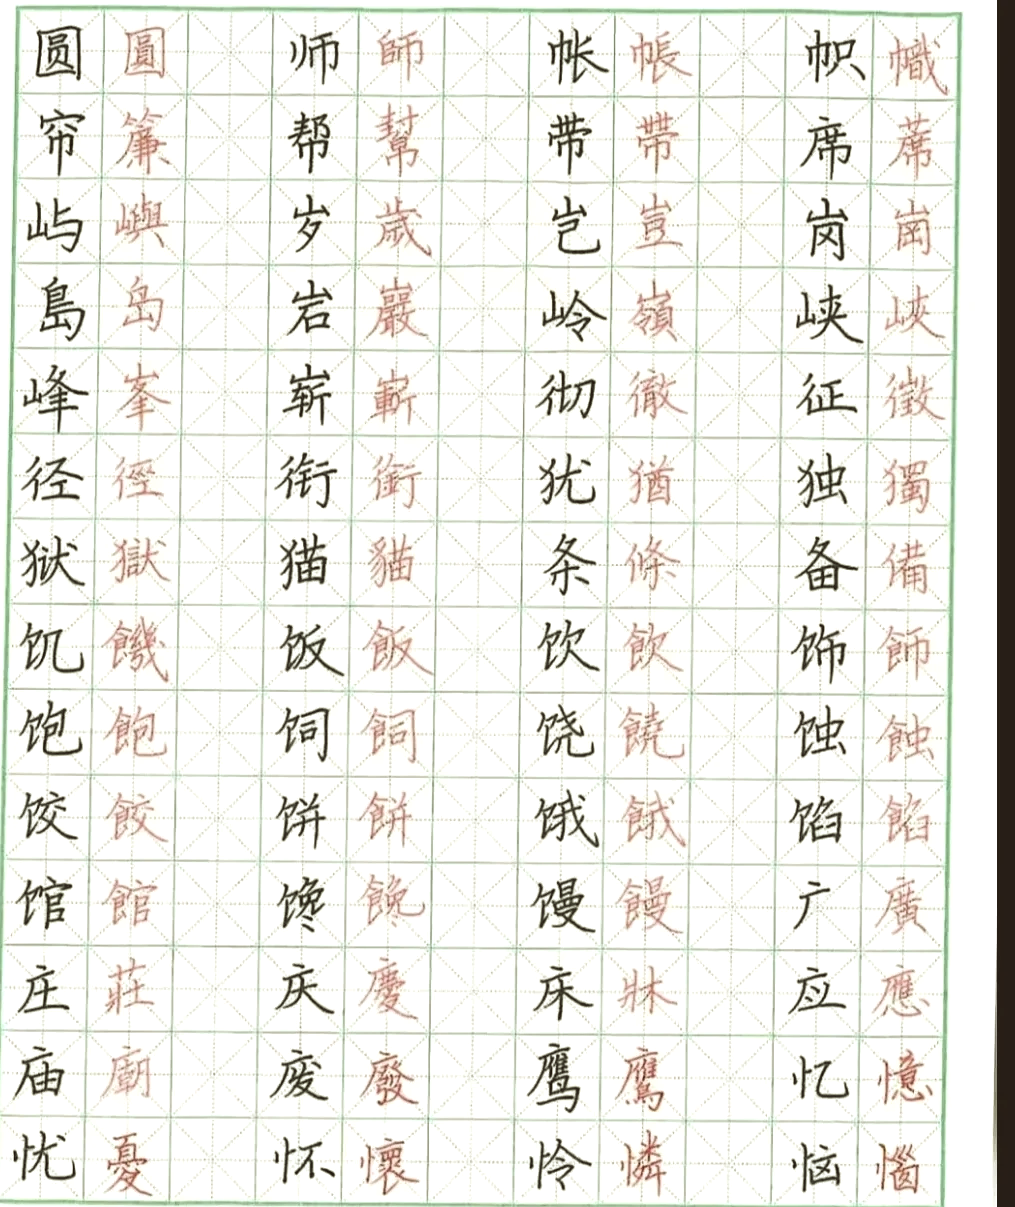 圆 圓 师 師 帐 帳 帜 幟
帘 簾 帮 幫 带 帶 席 蓆
屿 嶼 岁 歲 岂 豈 岗 崗
島 岛 岩 巖 岭 嶺 峡 峽
峰 峯 崭 嶄 彻 徹 征 徵
径 徑 衔 銜 犹 猶 独 獨
狱 獄 猫 貓 条 條 备 備
饥 饑 饭 飯 饮 飲 饰 飾
饱 飽 饲 飼 饶 饒 蚀 蝕
饺 餃 饼 餅 饿 餓 馅 餡
馆 館 馋 饞 馒 饅 广 廣
庄 莊 庆 慶 床 牀 应 應
庙 廟 废 廢 鹰 鷹 忆 憶
忧 憂 怀 懷 怜 憐 恼 惱